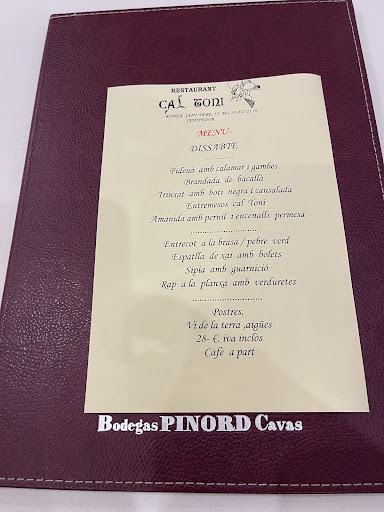 RESTAURANT
ÇAL TONI
RONDA SANT PERE,
SANTPEDOR
MENU-
DISSABTE
Fideuà amb calamar i gambes
Brandada de bacallà
Trinxat amb botí negra i cansalada
Entremesos cal Toni
Amanida amb pernil i encenalls permesa
Entrecot a la brasa / pebre verd
Espatlla de xai amb bolets
Sípia amb guarnició
Rap a la planxa amb verduretes
Postres.
Vi de la terra ,aigües
28- €, iva inclos
Cafè a part
Bodegas PINORD Cavas